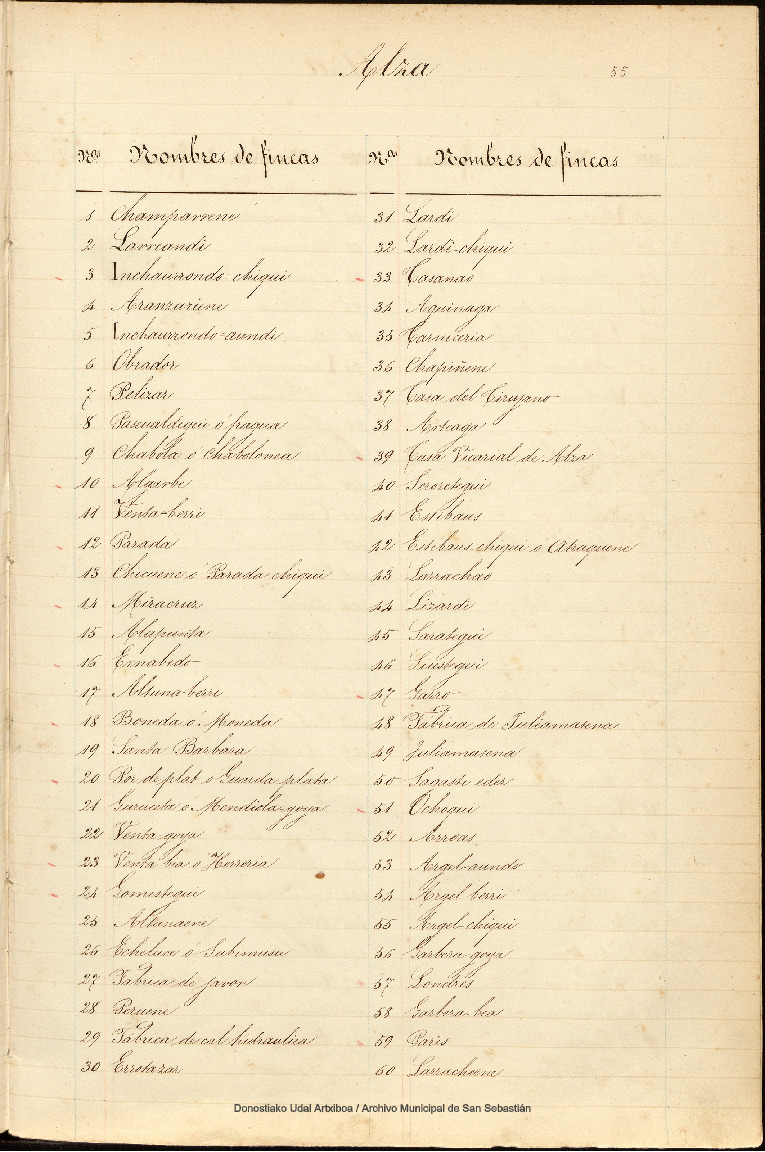 Alza
55
Nos Nombres de fincas
1 Champarrene
2 Larreandi
3 Inchaurrondo-chiqui
4 Aranzuriene
5 Inchaurrondo-aundi
6 Obrador
7 Pelizar
8 Pascualdegui ó fragua
9 Chabola ó Chabolonea
10 Algarbe
11 Venta-berri
12 Parada
13 Chicuene ó Parada chiqui
14 Miracruz
15 Alapunta
16 Ernabido
17 Altuna-berri
18 Boneda ó Moneda
19 Santa Barbara
20 Por de plat o Guarda plata
21 Gurusta o Mendiola-goya
22 Venta-goya
23 Venta bea o Herreria
24 Gomestegui
25 Altunaene
26 Echeluce o Subimusu
27 Fabrica de javon
28 Peruene
29 Fábrica de cal hidraulica
30 Errotazar
Nos Nombres de fincas
31 Lardi
32 Lardi-chiqui
33 Casanao
34 Aguinaga
35 Carniceria
36 Chapiñene
37 Casa del Cirujano
38 Arteaga
39 Casa Vicarial de Alza
40 Serorategui
41 Estibaus
42 Estibaus chiqui o Atraguene
43 Larrachao
44 Lizardi
45 Sarategui
46 Suistegui
47 Garro
48 Fábrica de Juliamasena
49 Juliamasena
50 Sagasti eder
51 Ochoqui
52 Arroas
53 Argel-aundi
54 Argel berri
55 Argel-chiqui
56 Garbera goya
57 Londres
58 Garbera-bea
59 Paris
60 Larrachoene
Donostiako Udal Artxiboa / Archivo Municipal de San Sebastián